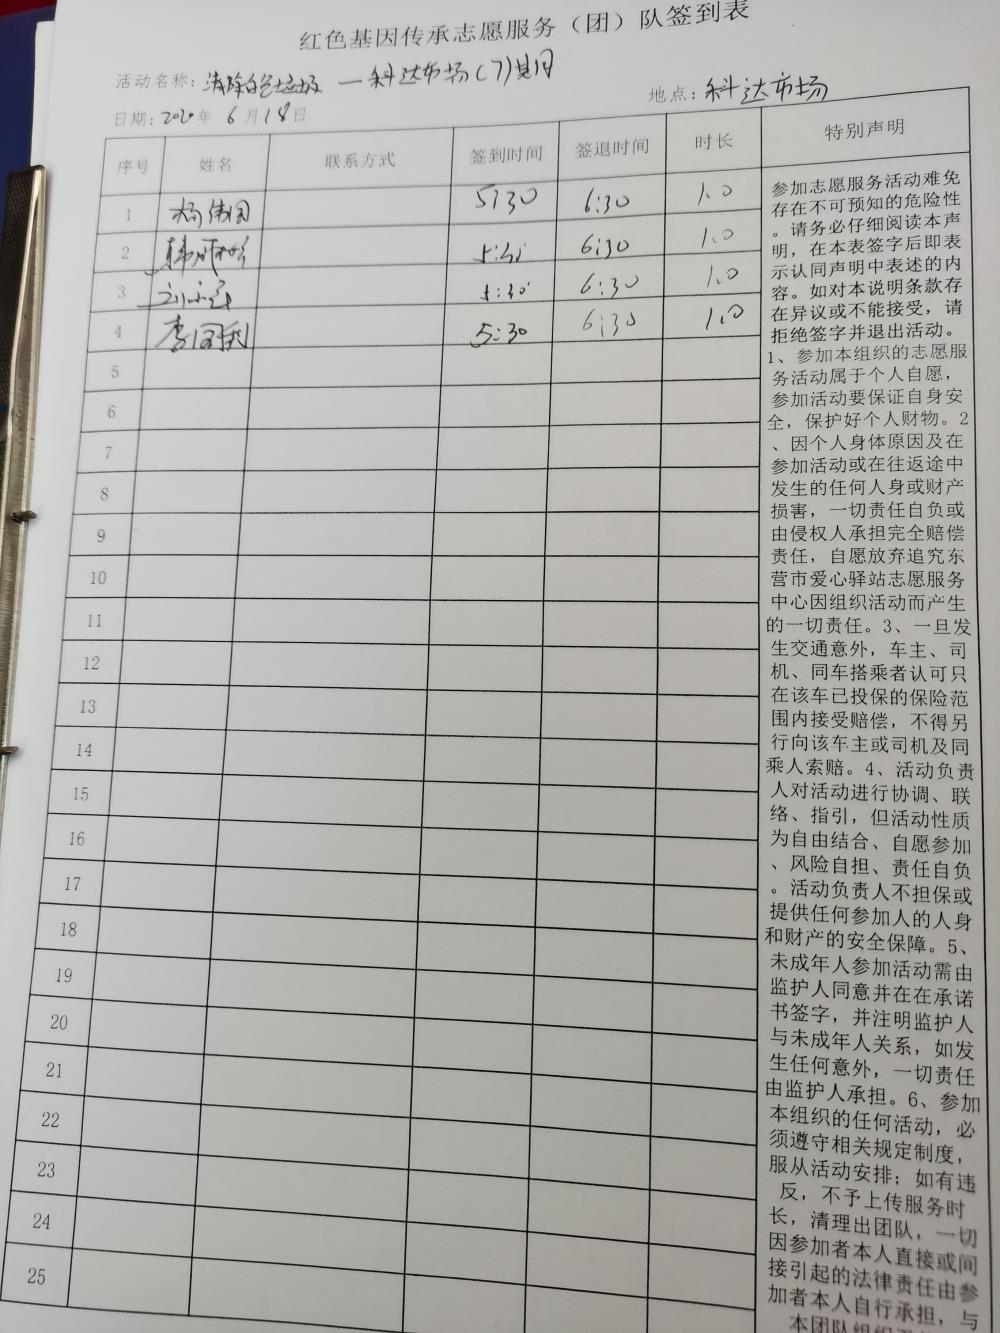 红色基因传承志愿服务（团）队签到表
活动名称：清除白色垃圾 —科达市场(7)期
地点：科达市场
日期：2020年 6月18日
序号 姓名 联系方式 签到时间 签退时间 时长 特别声明
1 杨伟国 5:30 6:30 1.0
2 5:30 6:30 1.0
3 5:30 6:30 1.0
4 李国利 5:30 6:30 1.0
5
6
7
8
9
10
11
12
13
14
15
16
17
18
19
20
21
22
23
24
25
参加志愿服务活动难免
存在不可预知的危险性
。请务必仔细阅读本声
明，在本表签字后即表
示认同声明中表述的内
容。如对本说明条款存
在异议或不能接受，请
拒绝签字并退出活动。
1、参加本组织的志愿服
务活动属于个人自愿，
参加活动要保证自身安
全，保护好个人财物。2
、因个人身体原因及在
参加活动或在往返途中
发生的任何人身或财产
损害，一切责任自负或
由侵权人承担完全赔偿
责任，自愿放弃追究东
营市爱心驿站志愿服务
中心因组织活动而产生
的一切责任。3、一旦发
生交通意外，车主、司
机、同车搭乘者认可只
在该车已投保的保险范
围内接受赔偿，不得另
行向该车主或司机及同
乘人索赔。4、活动负责
人对活动进行协调、联
络、指引，但活动性质
为自由结合、自愿参加
、风险自担、责任自负
。活动负责人不担保或
提供任何参加人的人身
和财产的安全保障。5、
未成年人参加活动需由
监护人同意并在在承诺
书签字，并注明监护人
与未成年人关系，如发
生任何意外，一切责任
由监护人承担。6、参加
本组织的任何活动，必
须遵守相关规定制度，
服从活动安排；如有违
反，不予上传服务时
长，清理出团队，一切
因参加者本人直接或间
接引起的法律责任由参
加者本人自行承担，与
本团队组织